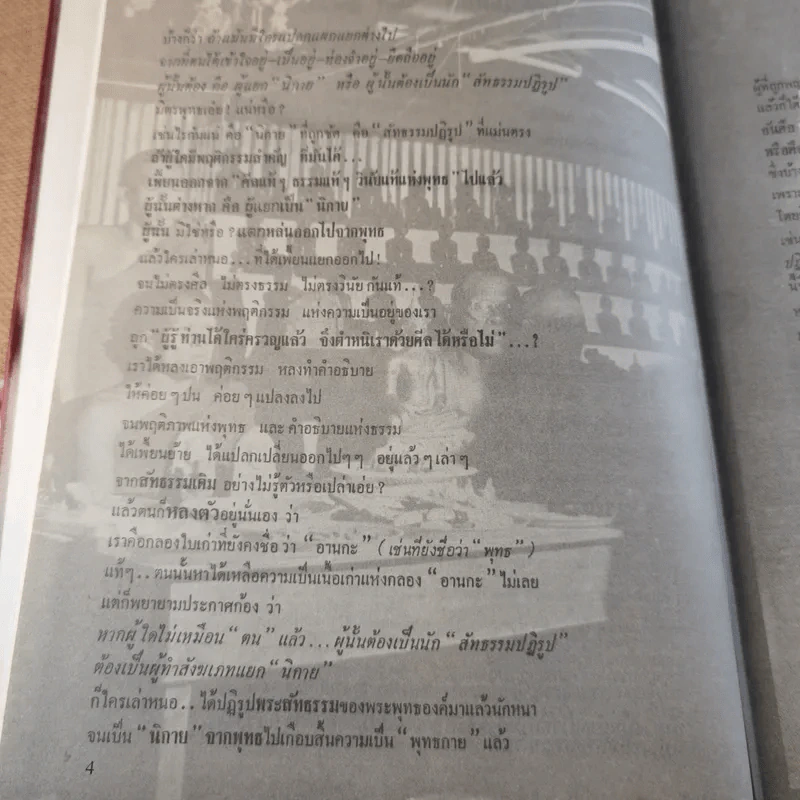 บ้างก็ว่า ถ้าแม้นมีใครแปลกแผกแยกต่างไป
จากที่ตนได้เข้าใจอยู่-เป็นอยู่-ท่องจำอยู่-ยึดถืออยู่
ผู้นั้นต้อง คือ ผู้แยก “นิกาย” หรือ ผู้นั้นต้องเป็นนัก “สัทธรรมปฏิรูป”
มิตรพุทธเอ๋ย? แน่หรือ?
เช่นไรกันแน่ คือ “นิกาย” ที่ถูกชัด คือ “สัทธรรมปฏิรูป” ที่แม่นตรง
ถ้าผู้ใดมีพฤติกรรมสำคัญ ที่มันได้...
เพี้ยนออกจาก “ศีลแท้ๆ ธรรมแท้ๆ วินัยแท้แห่งพุทธ” ไปแล้ว
ผู้นั้นต่างหาก คือ ผู้แยกเป็น “นิกาย”
ผู้นั้น มิใช่หรือ? แตกหล่นออกไปจากพุทธ
แล้วใครเล่าหนอ...ที่ได้เพี้ยนแยกออกไป!
จนไม่ตรงศีล ไม่ตรงธรรม ไม่ตรงวินัย กันแท้...?
ความเป็นจริงแห่งพฤติกรรม แห่งความเป็นอยู่ของเรา
ถูก “ผู้รู้ท่านได้ใคร่ครวญแล้ว จึงตำหนิเราด้วยศีลได้หรือไม่”...?
เราได้หลงเอาพฤติกรรม หลงทำคำอธิบาย
ให้ค่อยๆปน ค่อยๆแปลงลงไป
จนพฤติภาพแห่งพุทธ และ คำอธิบายแห่งธรรม
ได้เพี้ยนย้าย ได้แปลกเปลี่ยนออกไปๆๆ อยู่แล้วๆเล่าๆ
จากสัทธรรมเดิม อย่างไม่รู้ตัวหรือเปล่าเอ่ย?
แล้วตนก็หลงตัวอยู่นั่นเอง ว่า
เราคือกลองใบเก่าที่ยังคงชื่อ ว่า “อานกะ” (เช่นที่ยังชื่อว่า “พุทธ”)
แท้ๆ..ตนนั้นหาได้เหลือความเป็นเนื้อเก่าแห่งกลอง “อานกะ” ไม่เลย
แต่ก็พยายามประกาศก้อง ว่า
หากผู้ใดไม่เหมือน “ตน” แล้ว...ผู้นั้นต้องเป็นนัก “สัทธรรมปฏิรูป”
ต้องเป็นผู้ทำสังฆเภทแยก “นิกาย”
ก็ใครเล่าหนอ..ได้ปฏิรูปพระสัทธรรมของพระพุทธองค์มาแล้วนักหนา
จนเป็น “นิกาย” จากพุทธไปเกือบสิ้นความเป็น “พุทธกาย” แล้ว
4